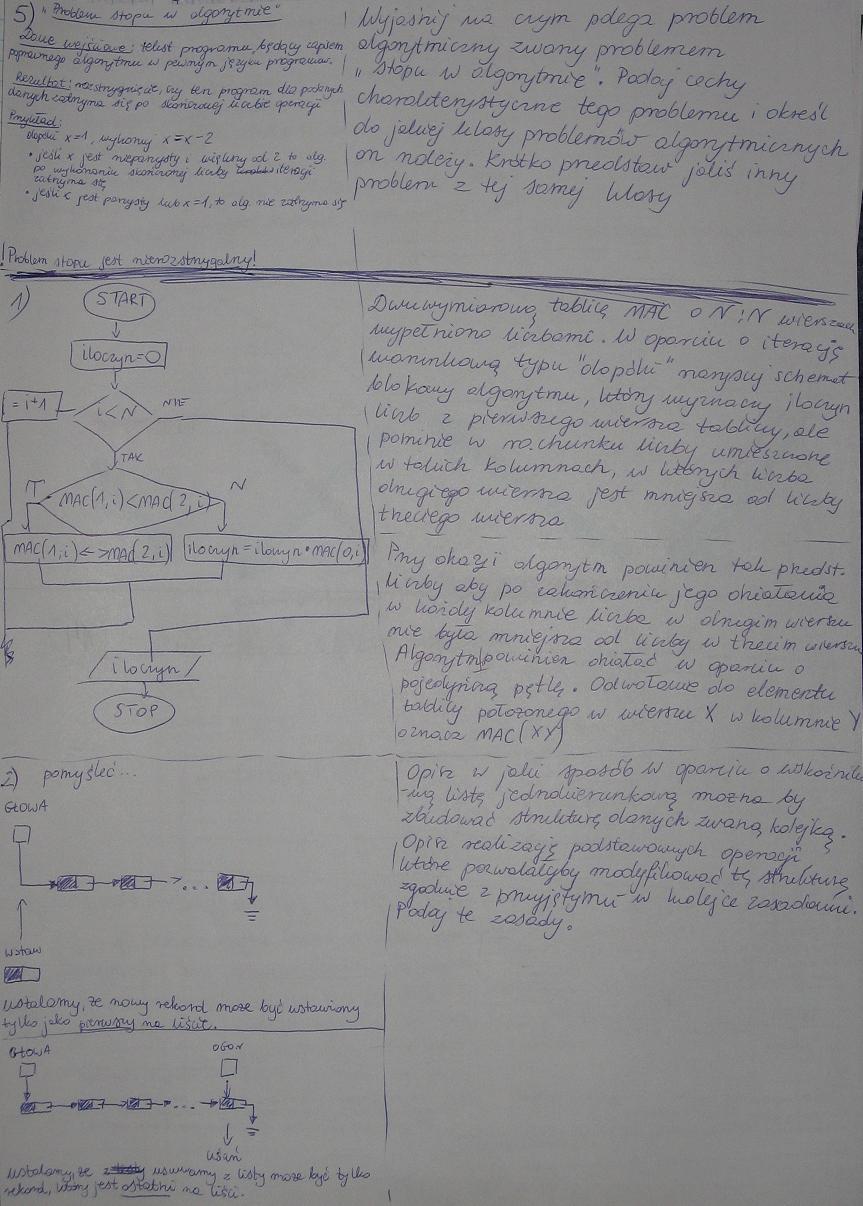 5) "Problem stopu w algorytmie"
Dane wejściowe: tekst programu będący zapisem
poprawnego algorytmu w pewnym języku programow.
Rezultat: rozstrzygnięcie, czy ten program dla podanych
danych zatrzyma się po skończonej liczbie operacji
Przykład:
dopóki x=1, wykonuj x=x-2
• jeśli x jest nieparzysty i większy od 2 to alg.
po wykonaniu skończonej liczby iteracji
zatrzyma się
• jeśli x jest parzysty lub x=1, to alg. nie zatrzyma się
! Problem stopu jest nierozstrzygalny!
Wyjaśnij na czym polega problem
algorytmiczny zwany problemem
"stopu w algorytmie". Podaj cechy
charakterystyczne tego problemu i określ
do jakiej klasy problemów algorytmicznych
on należy. Krótko przedstaw jakiś inny
problem z tej samej klasy
1)
START
iloczyn=0
=i+1
i<N
NIE
TAK
T
MAC(1,i)<MAC(2,i)
N
MAC(1,i)<->MAC(2,i)
iloczyn=iloczyn*MAC(0,i)
iloczyn
STOP
Dwuwymiarową tablicę MAC o N:N wierszach
wypełniono liczbami. W oparciu o iterację
warunkową typu "dopóki" narysuj schemat
blokowy algorytmu, który wyznaczy iloczyn
liczb z pierwszego wiersza tablicy, ale
pominie w rachunku liczby umieszczone
w takich kolumnach, w których liczba
drugiego wiersza jest mniejsza od liczby
trzeciego wiersza
Przy okazji algorytm powinien tak przedst.
liczby aby po zakończeniu jego działania
w każdej kolumnie liczba w drugim wierszu
nie była mniejsza od liczby w trzecim wierszu
Algorytm powinien działać w oparciu o
pojedyńczą pętlę. Odwołanie do elementu
tablicy położonego w wierszu X w kolumnie Y
oznacz MAC(XY)
2) pomyśleć...
GŁOWA
...
wstaw
ustalamy, że nowy rekord może być wstawiony
tylko jako pierwszy na liście.
GŁOWA
OGON
...
usuń
ustalamy, że usuwamy z listy może być tylko
rekord, który jest ostatni na liści.
Opisz w jaki sposób w oparciu o wskaźniko
-wą listę jednokierunkową można by
zbudować strukturę danych zwaną kolejką.
Opisz realizację podstawowych operacji
które pozwalałyby modyfikować tę strukturę
zgodnie z przyjętymi w kolejce zasadami.
Podaj te zasady.